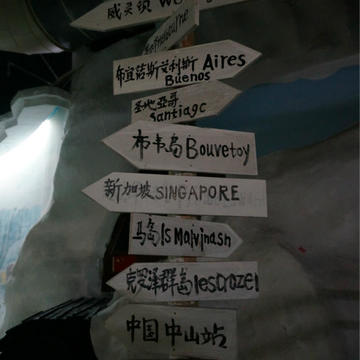 威灵顿 We
Melbourne
布宜诺斯艾利斯 Aires
Buenos
圣地亚哥
Santiago
布韦岛 Bouvetoy
新加坡 SINGAPORE
马岛 Is Malvinasn
克罗泽群岛 lesCrozel
中国中山站